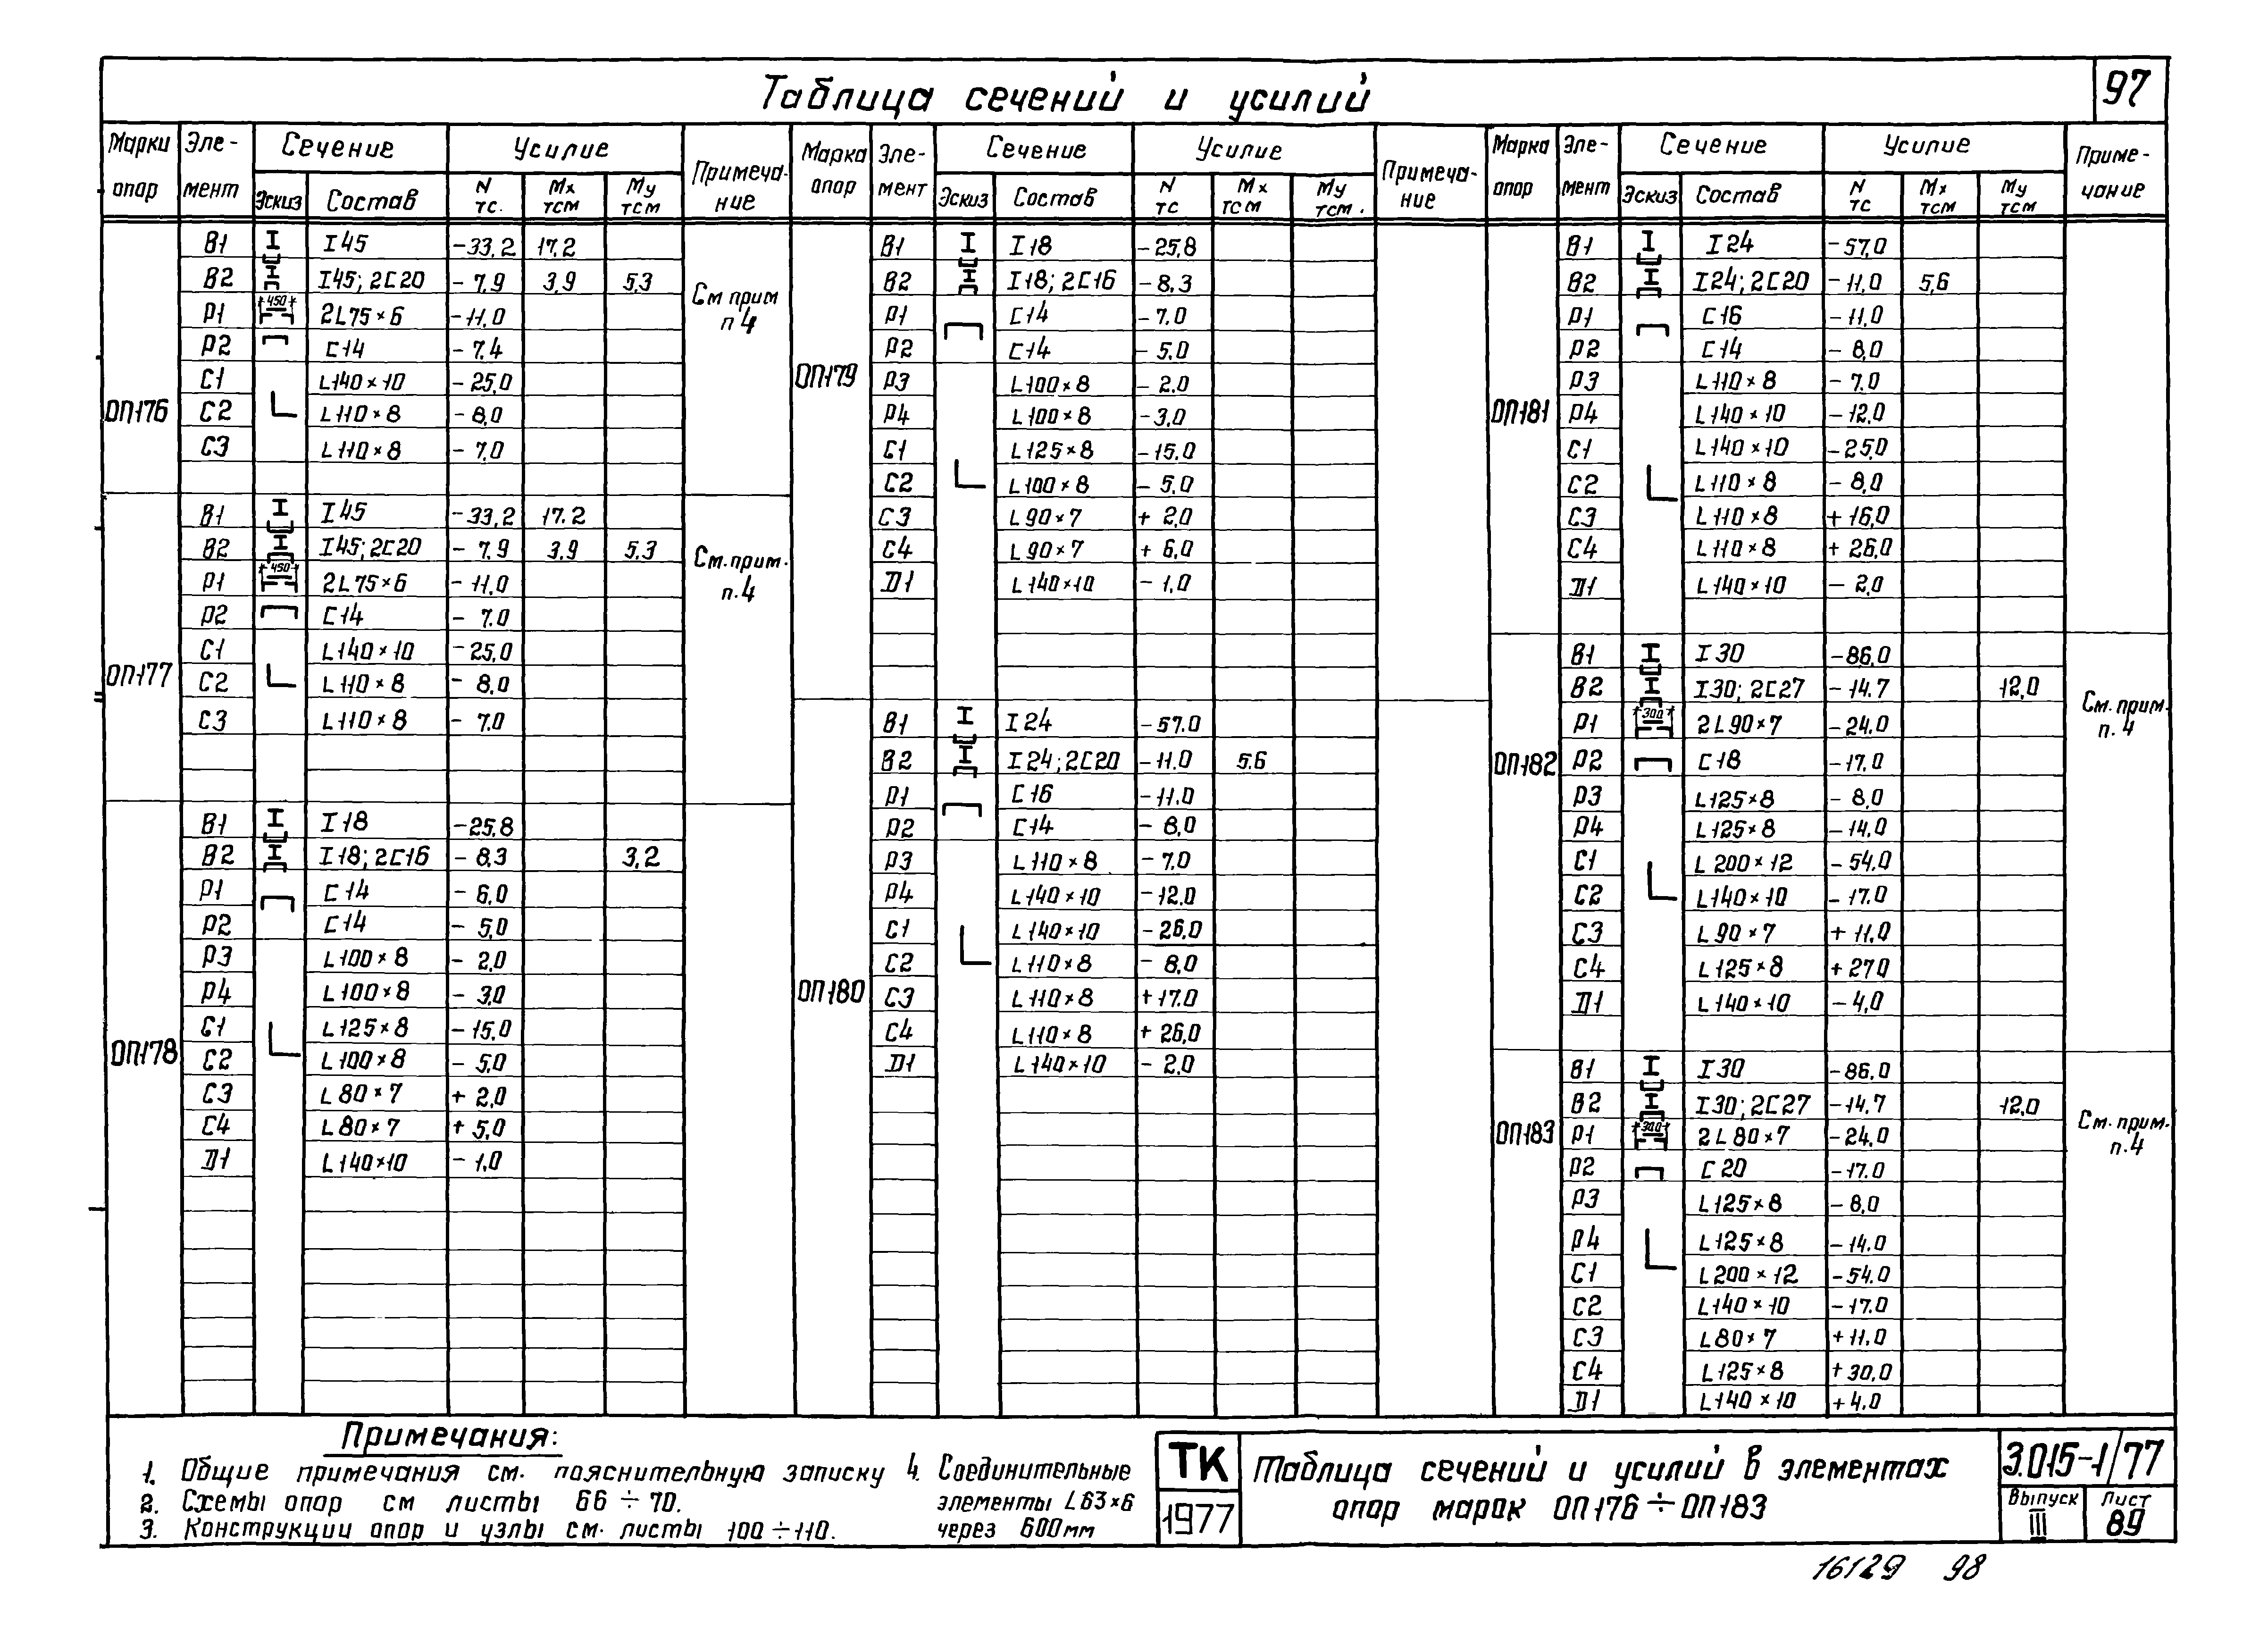 97
Таблица сечений и усилий
Марки опор | Эле-мент | Сечение | Усилие | Примеча-ние
Эскиз | Состав | N тс. | Mx тсм | My тсм
ОП176
В1 I45 -33,2 17,2
В2 I45; 2С20 -7,9 3,9 5,3
Р1 450 2L75×6 -11,0
Р2 С14 -7,4
С1 L140×10 -25,0
С2 L110×8 -8,0
С3 L110×8 -7,0
См прим
п 4
ОП177
В1 I45 -33,2 17.2
В2 I45; 2С20 -7,9 3,9 5.3
Р1 450 2L75×6 -11,0
Р2 С14 -7.0
С1 L140×10 -25,0
С2 L110×8 -8,0
С3 L110×8 -7.0
См. прим.
п.4
ОП178
В1 I18 -25,8
В2 I18; 2С16 -8,3 3,2
Р1 С14 -6,0
Р2 С14 -5,0
Р3 L100×8 -2,0
Р4 L100×8 -3,0
С1 L125×8 -15,0
С2 L100×8 -5,0
С3 L80×7 +2,0
С4 L80×7 +5,0
Д1 L140×10 -1,0
Марка опор | Эле-мент | Сечение | Усилие | Примеча-ние
Эскиз | Состав | N тс | Mx тсм | My тсм.
ОП179
В1 I18 -25,8
В2 I18; 2С16 -8,3
Р1 С14 -7.0
Р2 С14 -5.0
Р3 L100×8 -2.0
Р4 L100×8 -3,0
С1 L125×8 -15.0
С2 L100×8 -5,0
С3 L90×7 +2,0
С4 L90×7 +6,0
Д1 L140×10 -1,0
ОП180
В1 I24 -57.0
В2 I24; 2С20 -11.0 5.6
Р1 С16 -11.0
Р2 С14 -8,0
Р3 L110×8 -7.0
Р4 L140×10 -12.0
С1 L140×10 -26,0
С2 L110×8 -8,0
С3 L110×8 +17.0
С4 L110×8 +26,0
Д1 L140×10 -2,0
Марка опор | Эле-мент | Сечение | Усилие | Приме-чание
Эскиз | Состав | N тс | Mx тсм | My тсм
ОП181
В1 I24 -57,0
В2 I24; 2С20 -11,0 5,6
Р1 С16 -11,0
Р2 С14 -8,0
Р3 L110×8 -7,0
Р4 L140×10 -12,0
С1 L140×10 -25,0
С2 L110×8 -8,0
С3 L110×8 +16,0
С4 L110×8 +26,0
Д1 L140×10 -2,0
ОП182
В1 I30 -86,0
В2 I30; 2С27 -14.7 12,0
Р1 300 2L90×7 -24.0
Р2 С18 -17,0
Р3 L125×8 -8,0
Р4 L125×8 -14,0
С1 L200×12 -54.0
С2 L140×10 -17.0
С3 L90×7 +11,0
С4 L125×8 +27,0
Д1 L140×10 -4,0
См. прим.
п. 4
ОП183
В1 I30 -86,0
В2 I30; 2С27 -14,7 12,0
Р1 300 2L80×7 -24,0
Р2 С20 -17.0
Р3 L125×8 -8,0
Р4 L125×8 -14.0
С1 L200×12 -54.0
С2 L140×10 -17.0
С3 L80×7 +11,0
С4 L125×8 +30,0
Д1 L140×10 +4.0
См. прим.
п.4
Примечания:
1. Общие примечания см. пояснительную записку
2. Схемы опор см листы 66÷70.
3. Конструкции опор и узлы см. листы 100÷110.
4. Соединительные
элементы L63×6
через 600мм
ТК
1977
Таблица сечений и усилий в элементах
опор марок ОП176÷ОП183
3.015-1/77
Выпуск III
Лист 89
16129 98